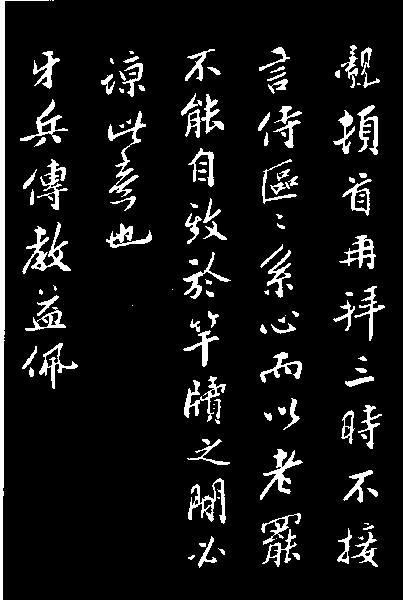 覿頓首再拜三時不接
言侍區〻系心而以老罷
不能自致於竿牘之間必
諒此意也
牙兵傳教益佩